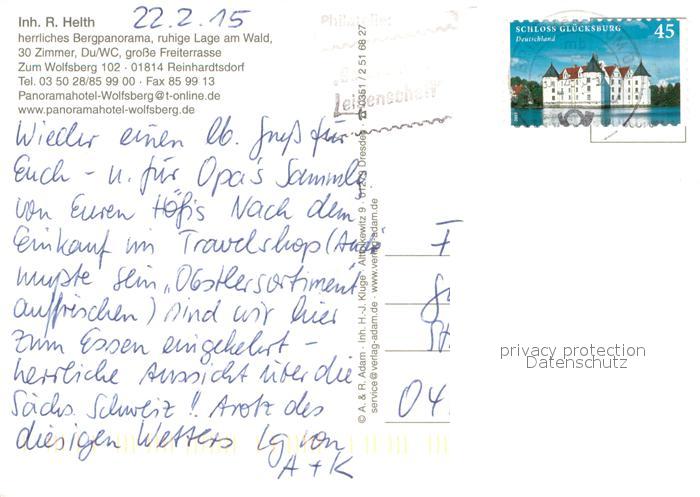 Inh. R. Helth
22.2.15
herrliches Bergpanorama, ruhige Lage am Wald,
30 Zimmer, Du/WC, große Freiterrasse
Zum Wolfsberg 102 · 01814 Reinhardtsdorf
Tel. 03 50 28/85 99 00 · Fax 85 99 13
Panoramahotel-Wolfsberg@t-online.de
www.panoramahotel-wolfsberg.de
Wieder einen lb. Gruß für
Euch - u. für Opa's Samml.
von Euren Höfis Nach dem
Einkauf im Travelshop (
mußte sein, "Obstlersortiment"
auffrischen) sind wir hier
zum Essen eingekehrt -
herrliche Aussicht über die
Sächs. Schweiz!! Trotz des
diesigen Wetters Lg von
A + K
Philatelie:
Leidenschaft
© A. & R. Adam · Inh. H.-J. Kluge · Altlockwitz 9 · 01239 Dresden · ☎ 0351 / 2 51 68 27
service@verlag-adam.de · www.verlag-adam.de
SCHLOSS GLÜCKSBURG
Deutschland
45
04
privacy protection
Datenschutz